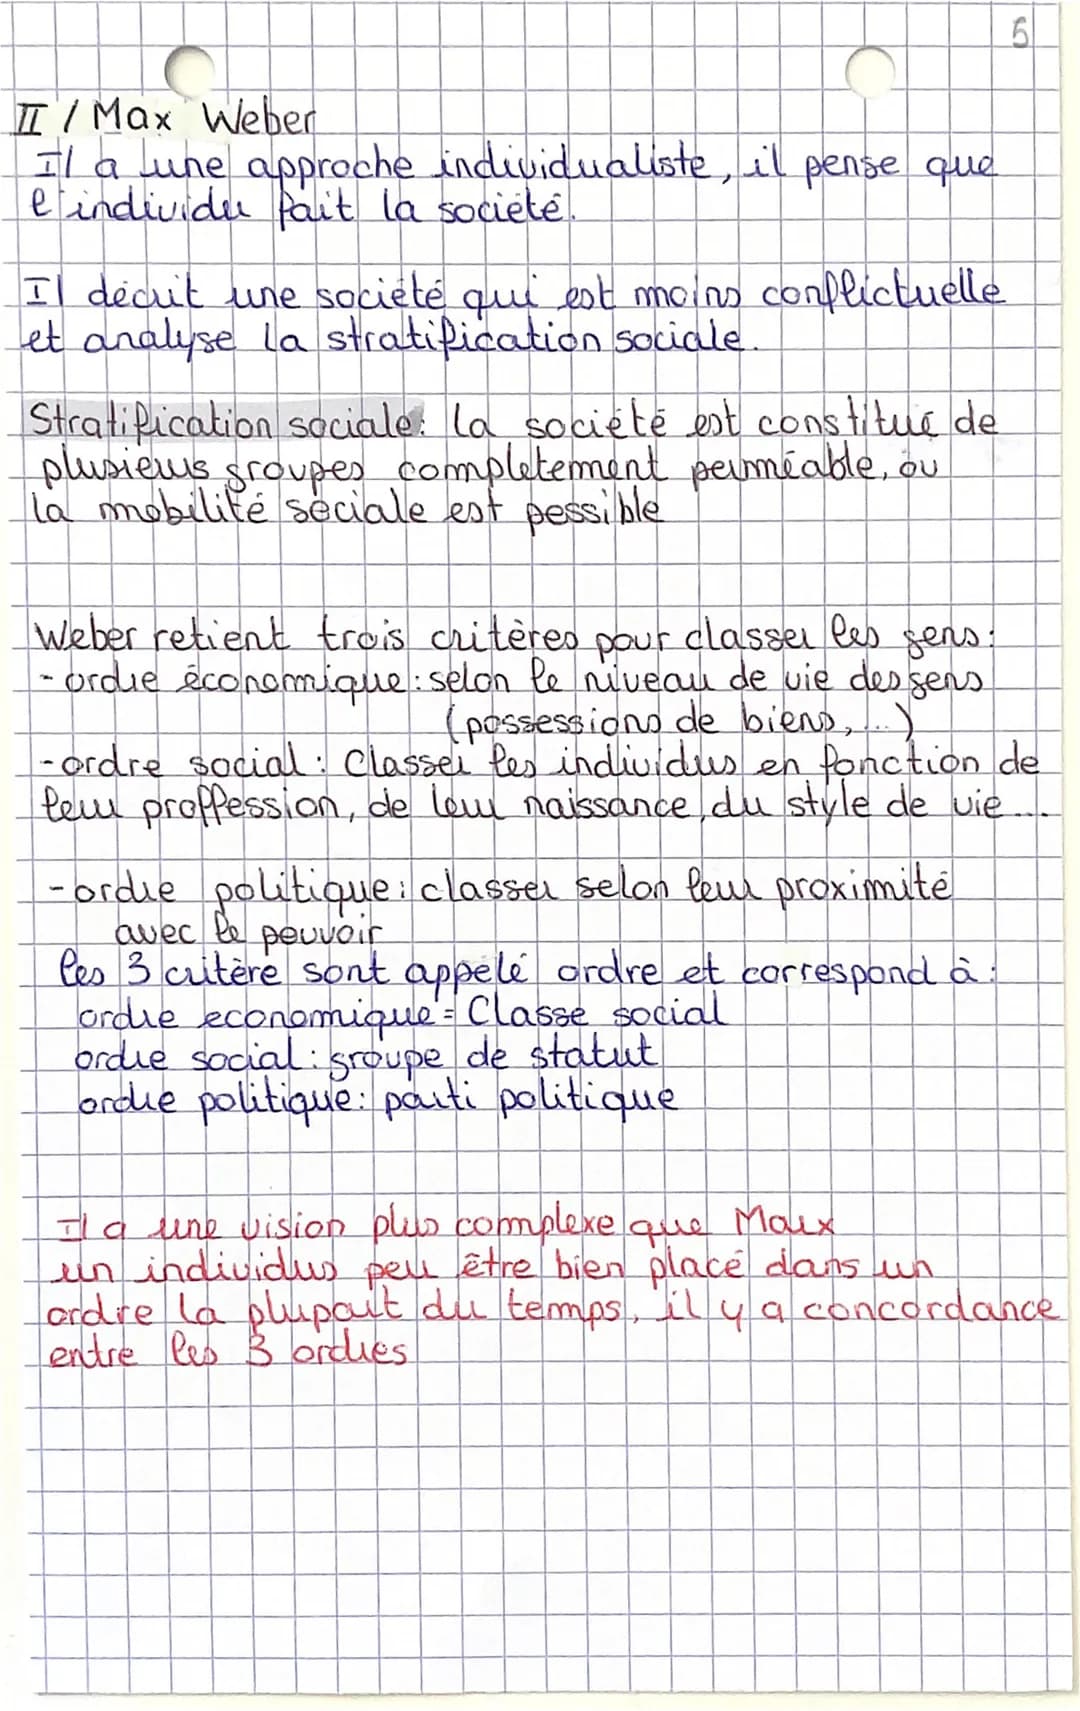 5
II / Max Weber
Il a une approche individualiste, il pense que
l'individu fait la société.
Il décrit une société qui est moins conflictuelle
et analyse la stratification sociale.
Stratification sociale: la société est constitué de
plusieurs groupes completement perméable, ou
la mobilité sociale est possible
Weber retient trois critères pour classer les gens:
- ordre économique: selon le niveau de vie des gens
(possessions de biens, ...)
- ordre social : Classer les individus en fonction de
leur proffession, de leur naissance, du style de vie ...
- ordre politique: classer selon leur proximité
avec le pouvoir
les 3 critère sont appelé ordre et correspond à :
ordre economique = Classe social
ordre social: groupe de statut
ordre politique: parti politique
Il a une vision plus complexe que Marx
un individus peu être bien placé dans un
ordre la plupart du temps, il y a concordance
entre les 3 ordres